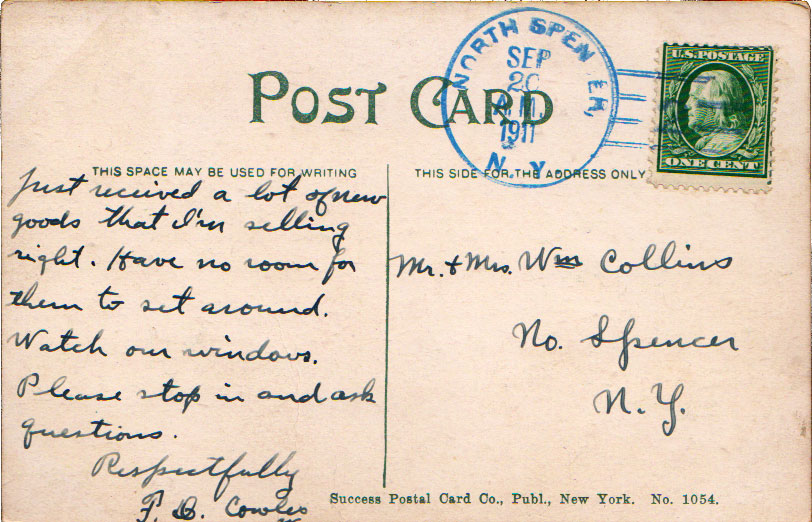 NORTH SPENCER,
SEP
20
A.M.
1911
N.Y.
U.S. POSTAGE
ONE CENT
POST CARD
THIS SPACE MAY BE USED FOR WRITING
THIS SIDE FOR THE ADDRESS ONLY
Just received a lot of new
goods that I'm selling
right. Have no room for
them to set around.
Watch our windows.
Please stop in and ask
questions.
Respectfully
Cowles
Mr. & Mrs. Wm Collins
No. Spencer
N.Y.
Success Postal Card Co., Publ., New York. No. 1054.